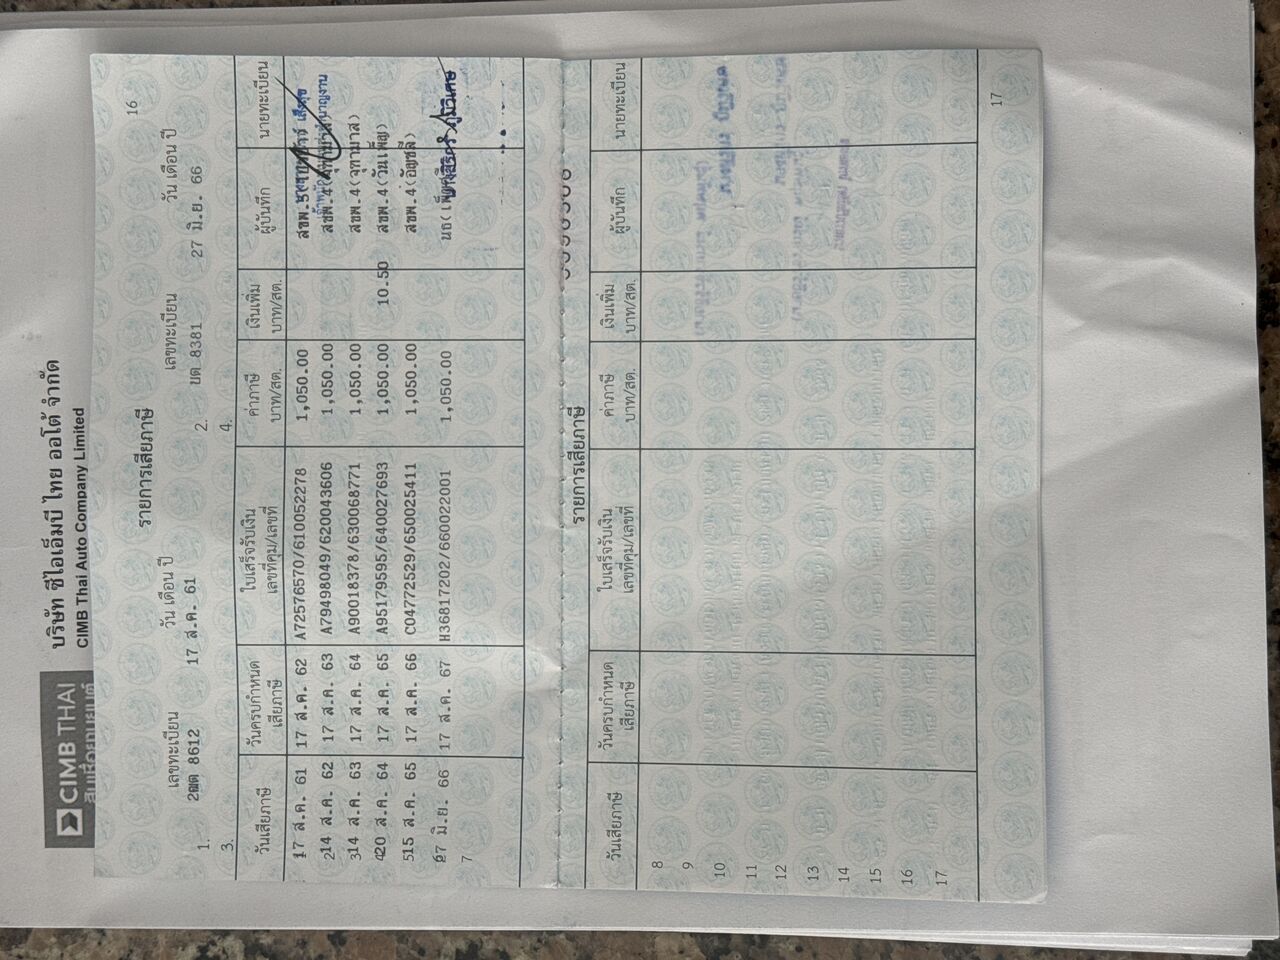 CIMB THAI
บริษัท ซีไอเอ็มบี ไทย ออโต้ จำกัด
CIMB Thai Auto Company Limited
16
รายการเสียภาษี
เลขทะเบียน วัน เดือน ปี เลขทะเบียน วัน เดือน ปี
1. 2ฒต 8612 17 ส.ค. 61 2. ขต 8381 27 มิ.ย. 66
3. 4.
วันเสียภาษี วันครบกำหนดเสียภาษี ใบเสร็จรับเงิน เลขที่คุม/เลขที่ ค่าภาษี บาท/สต. เงินเพิ่ม บาท/สต. ผู้บันทึก นายทะเบียน
17 ส.ค. 61 17 ส.ค. 62 A72576570/610052278 1,050.00 สขพ.5
2 14 ส.ค. 62 17 ส.ค. 63 A79498049/620043606 1,050.00 สขพ.4
3 14 ส.ค. 63 17 ส.ค. 64 A90018378/630068771 1,050.00 สขพ.4(จุฑามาส)
4 20 ส.ค. 64 17 ส.ค. 65 A95179595/640027693 1,050.00 10.50 สขพ.4(วันเพ็ญ)
5 15 ส.ค. 65 17 ส.ค. 66 C04772529/650025411 1,050.00 สขพ.4(อัญชลี)
27 มิ.ย. 66 17 ส.ค. 67 H36817202/660022001 1,050.00 นธ(
7
รายการเสียภาษี
วันเสียภาษี วันครบกำหนดเสียภาษี ใบเสร็จรับเงิน เลขที่คุม/เลขที่ ค่าภาษี บาท/สต. เงินเพิ่ม บาท/สต. ผู้บันทึก นายทะเบียน
8
9
10
11
12
13
14
15
16
17
17